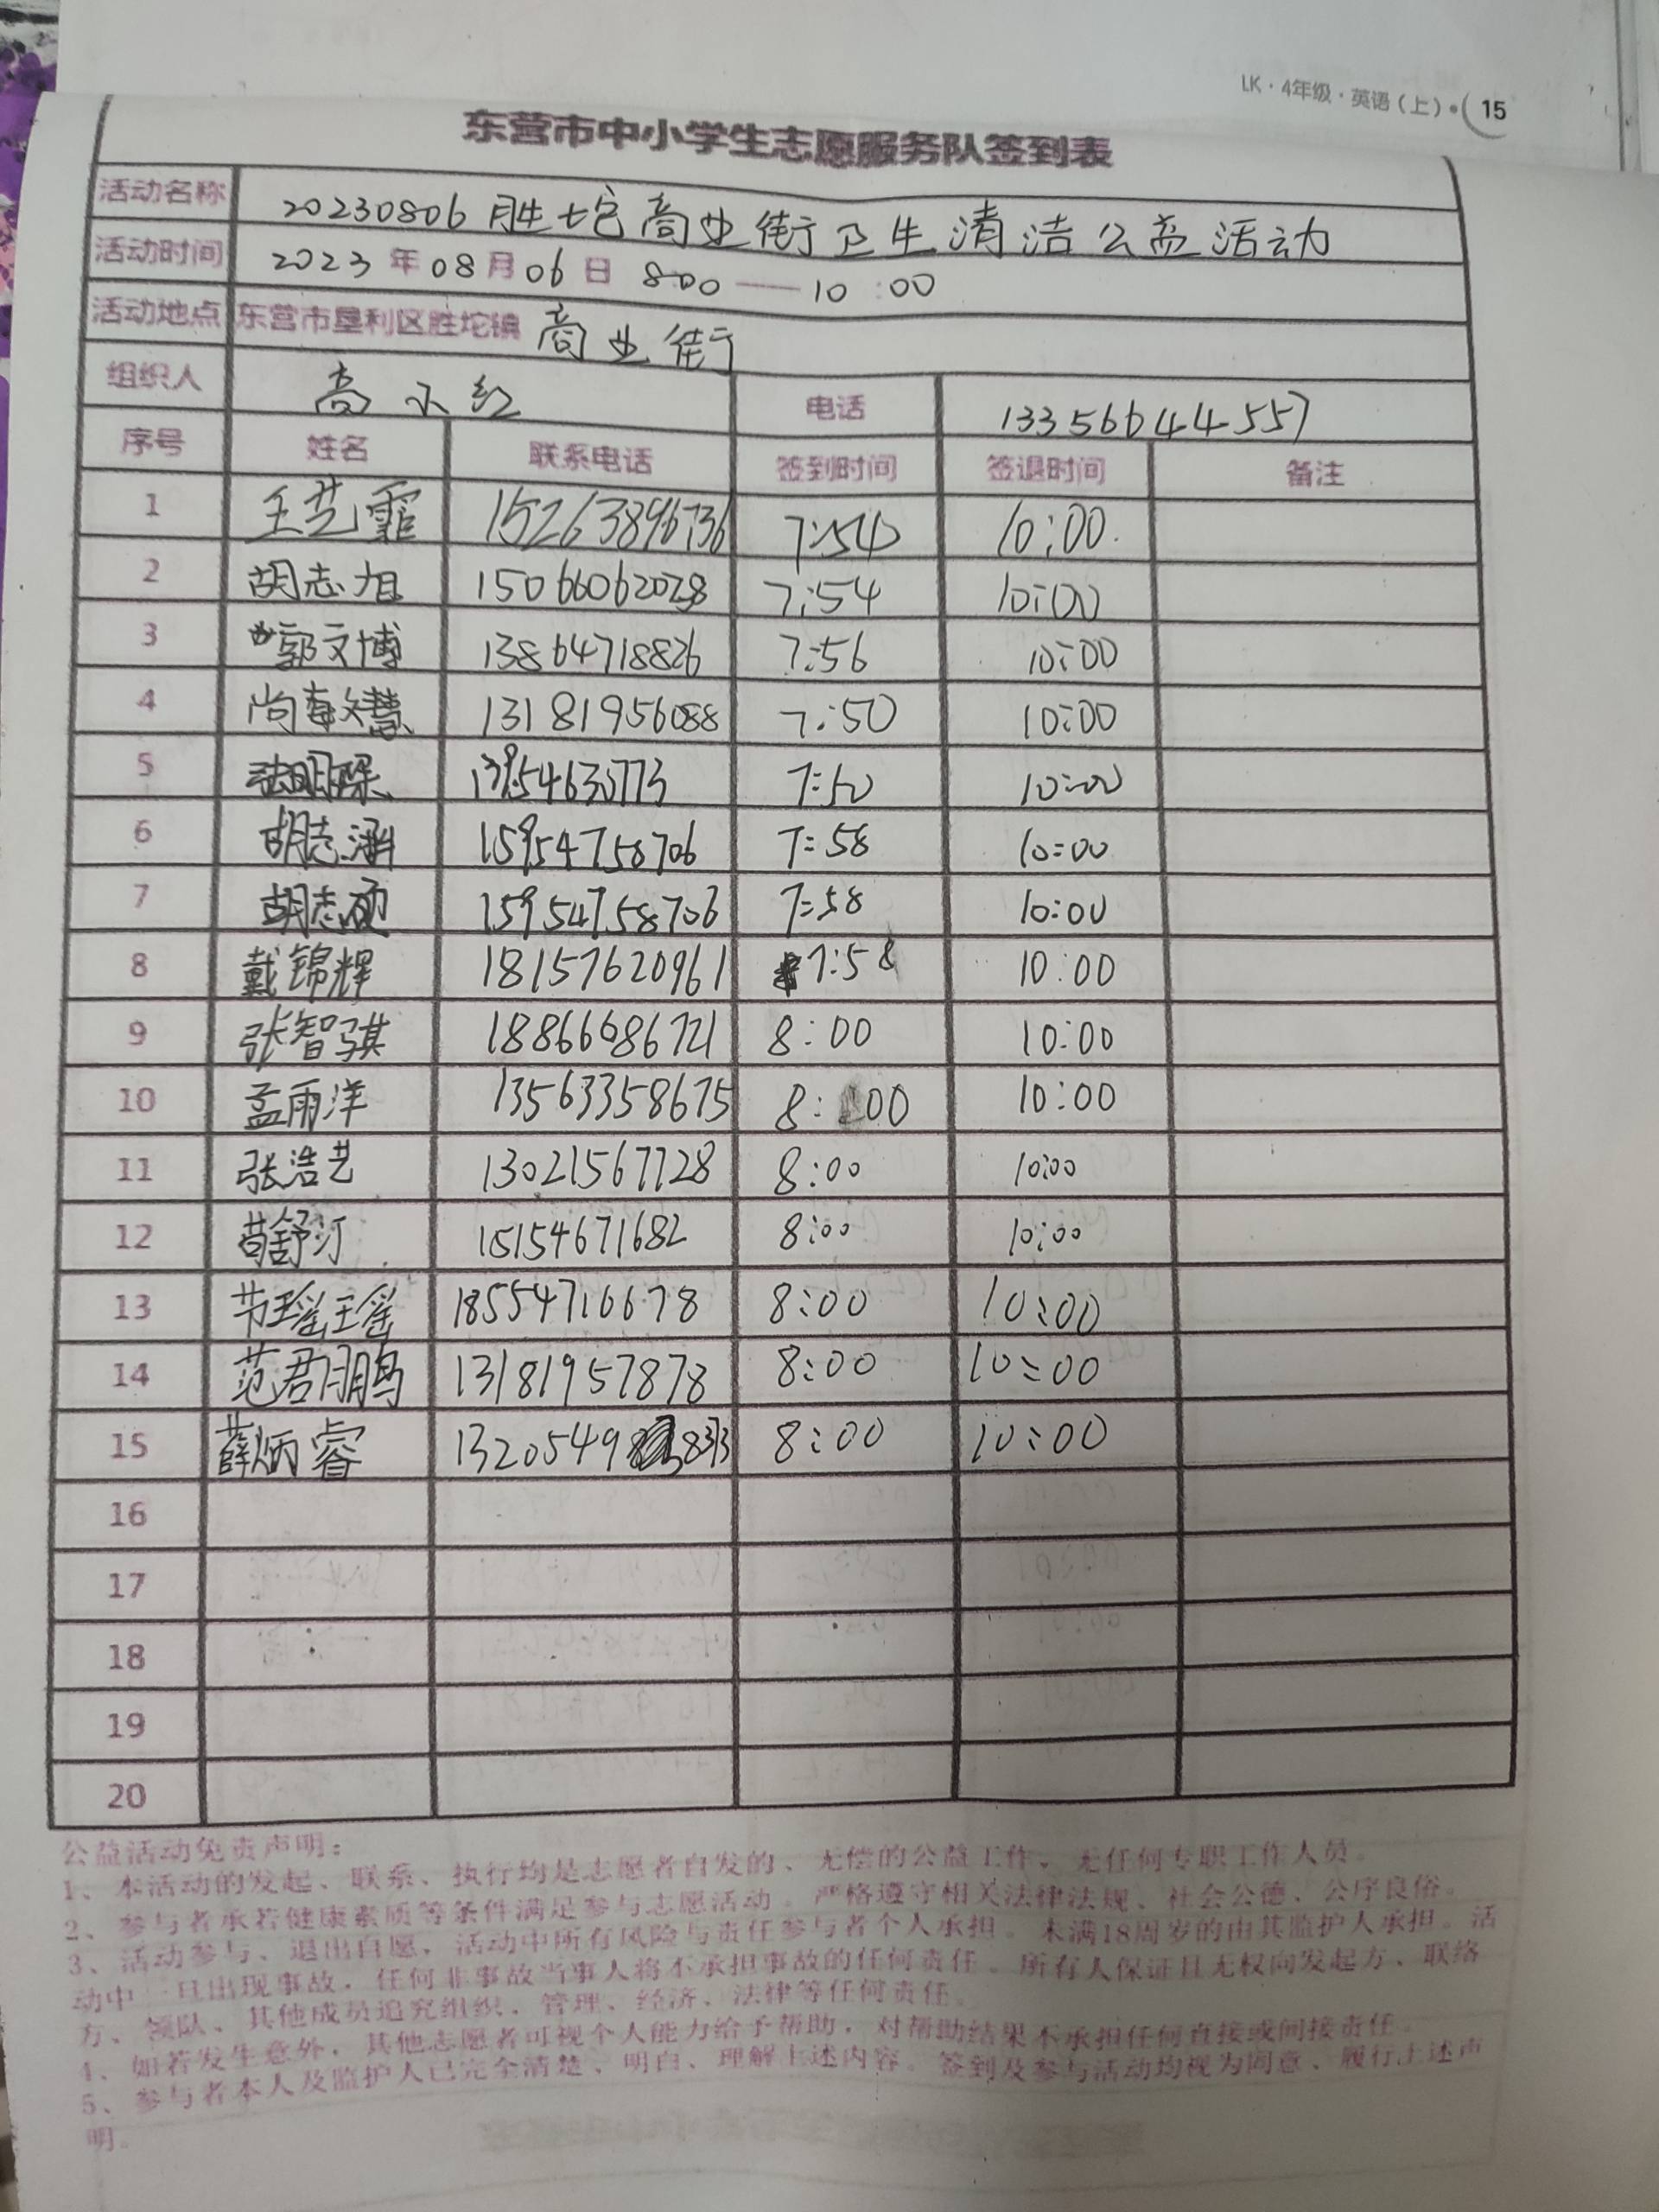 LK·4年级·英语（上）·15
东营市中小学生志愿服务队签到表
活动名称 20230806胜坨商业街卫生清洁公益活动
活动时间 2023年08月06日 8:00——10:00
活动地点 东营市垦利区胜坨镇 商业街
组织人 高小红 电话 13356644557
序号 姓名 联系电话 签到时间 签退时间 备注
1 王艺霏 15263896736 7:54 10:00
2 胡志旭 15066062028 7:54 10:00
3 郭文博 13864718826 7:56 10:00
4 尚 慧 13181956088 7:50 10:00
5 张明琛 7:50 10:00
6 胡志涵 15954758706 7:58 10:00
7 胡志硕 15954758706 7:58 10:00
8 戴锦辉 18157620961 7:58 10:00
9 张智骐 18866686721 8:00 10:00
10 孟雨洋 13563358675 8:00 10:00
11 张浩艺 13021567728 8:00 10:00
12 苟舒汀 15154671682 8:00 10:00
13 18554716678 8:00 10:00
14 范君鹏 13181957878 8:00 10:00
15 薛炳睿 8:00 10:00
16
17
18
19
20
公益活动免责声明：
1、本活动的发起、联系、执行均是志愿者自发的、无偿的公益工作，无任何专职工作人员。
2、参与者承若健康素质等条件满足参与志愿活动。严格遵守相关法律法规、社会公德、公序良俗。
3、活动参与、退出自愿，活动中所有风险与责任参与者个人承担。未满18周岁的由其监护人承担。活
动中一旦出现事故，任何非事故当事人将不承担事故的任何责任。所有人保证且无权向发起方、联络
方、领队、其他成员追究组织、管理、经济、法律等任何责任。
4、如若发生意外，其他志愿者可视个人能力给予帮助，对帮助结果不承担任何直接或间接责任。
5、参与者本人及监护人已完全清楚、明白、理解上述内容。签到及参与活动均视为同意、履行上述声
明。